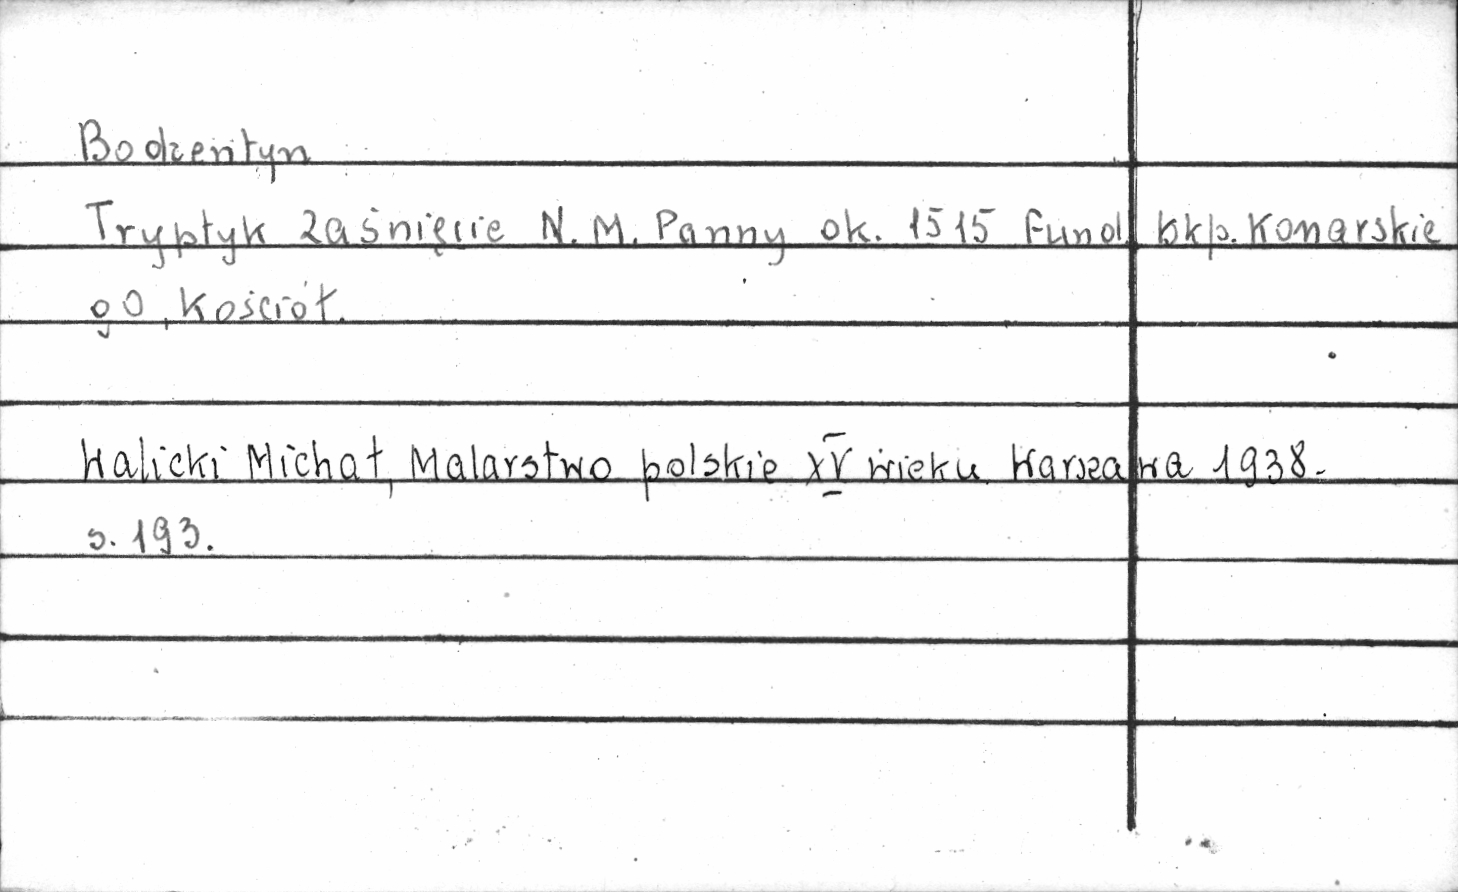 Bodzentyn
Tryptyk Zaśnięcie N. M. Panny ok. 1515 fund. bkp. Konarskie
go, Kościół.
Walicki Michał, Malarstwo polskie XV wieku Warszawa 1938.
s. 193.